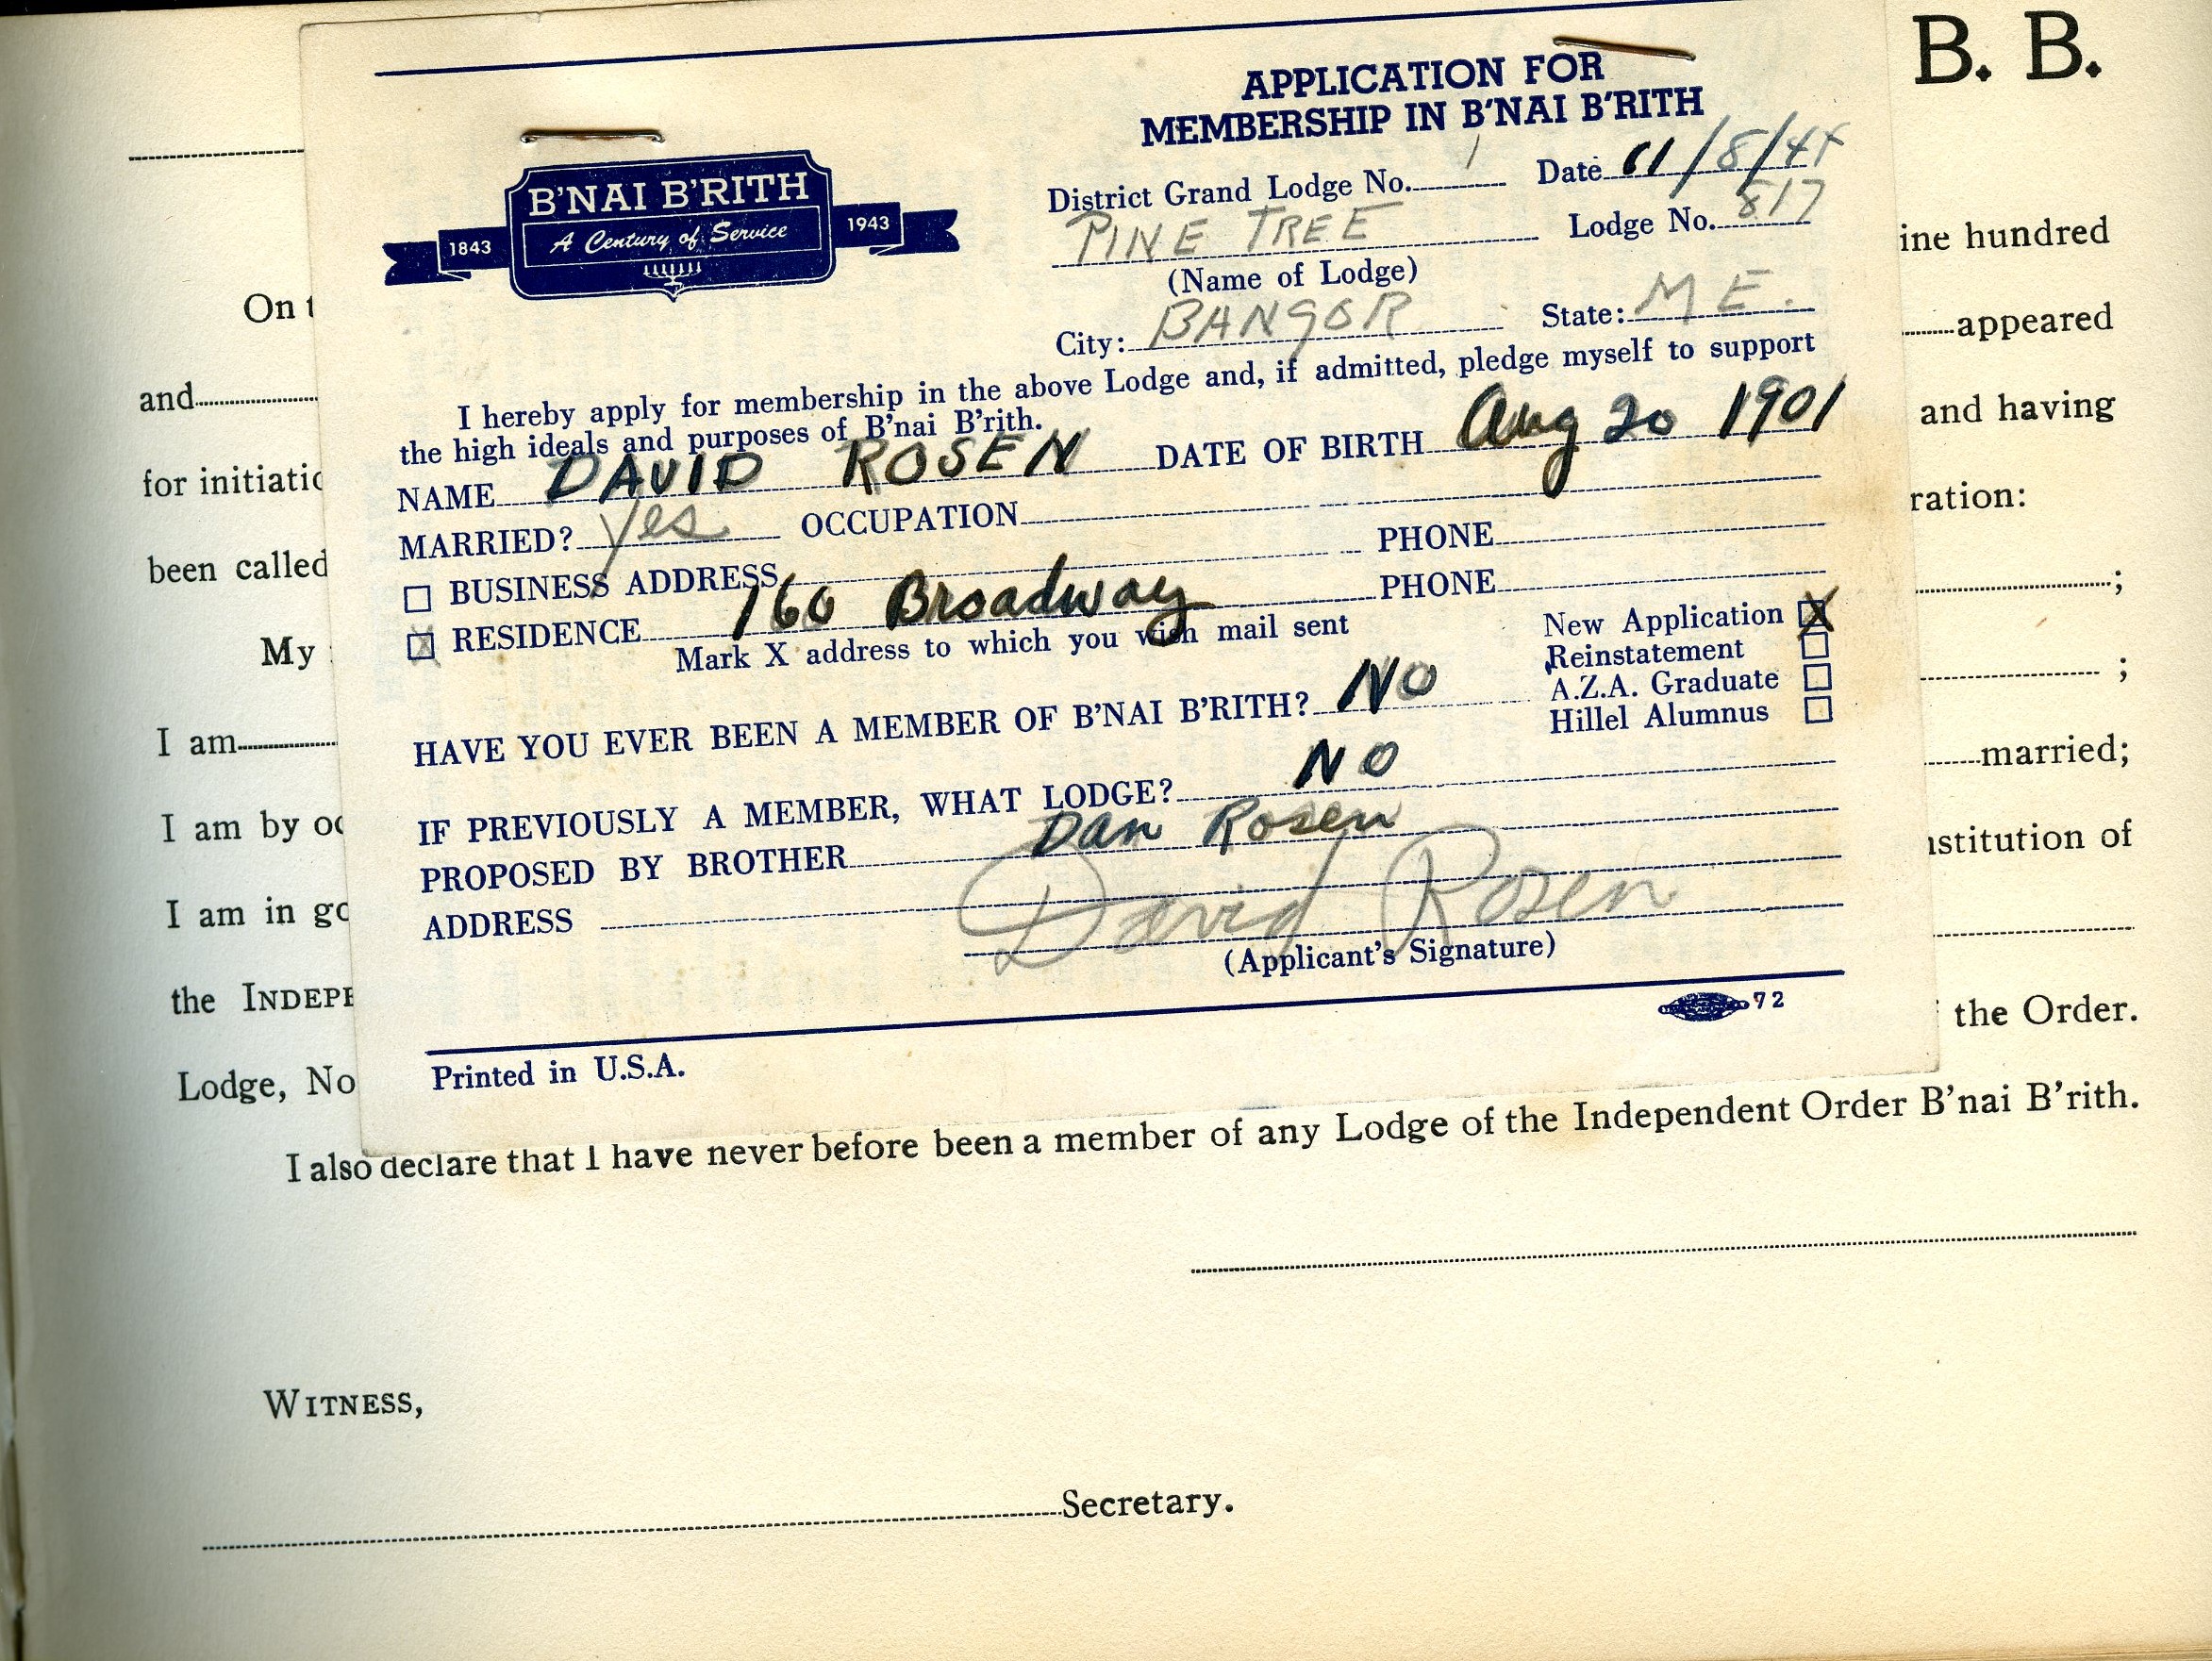 B. B.
APPLICATION FOR
MEMBERSHIP IN B'NAI B'RITH
B'NAI B'RITH
1843 A Century of Service 1943
District Grand Lodge No. 1 Date /8/44
PINE TREE Lodge No. 817
(Name of Lodge)
City: BANGOR State: ME.
I hereby apply for membership in the above Lodge and, if admitted, pledge myself to support
the high ideals and purposes of B'nai B'rith.
NAME DAVID ROSEN DATE OF BIRTH Aug 20 1901
MARRIED? Yes OCCUPATION
BUSINESS ADDRESS PHONE
RESIDENCE 160 Broadway PHONE
Mark X address to which you wish mail sent
New Application X
Reinstatement
A.Z.A. Graduate
Hillel Alumnus
HAVE YOU EVER BEEN A MEMBER OF B'NAI B'RITH? NO
IF PREVIOUSLY A MEMBER, WHAT LODGE? NO
PROPOSED BY BROTHER Dan Rosen
ADDRESS
David Rosen
(Applicant's Signature)
72
Printed in U.S.A.
ine hundred
On t
appeared
and
and having
for initiatio
ration:
been called
;
My
;
I am
married;
I am by oc
nstitution of
I am in go
the INDEPE
the Order.
Lodge, No
I also declare that I have never before been a member of any Lodge of the Independent Order B'nai B'rith.
WITNESS,
Secretary.